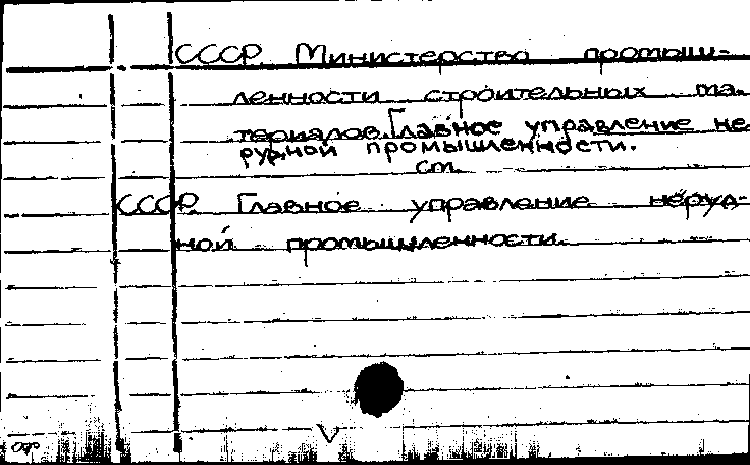 СССР. Министерство промыш-
ленности строительных ма-
териалов. Главное управление не-
рудной промышленности.
см.
СССР. Главное управление неруд-
ной промышленности.